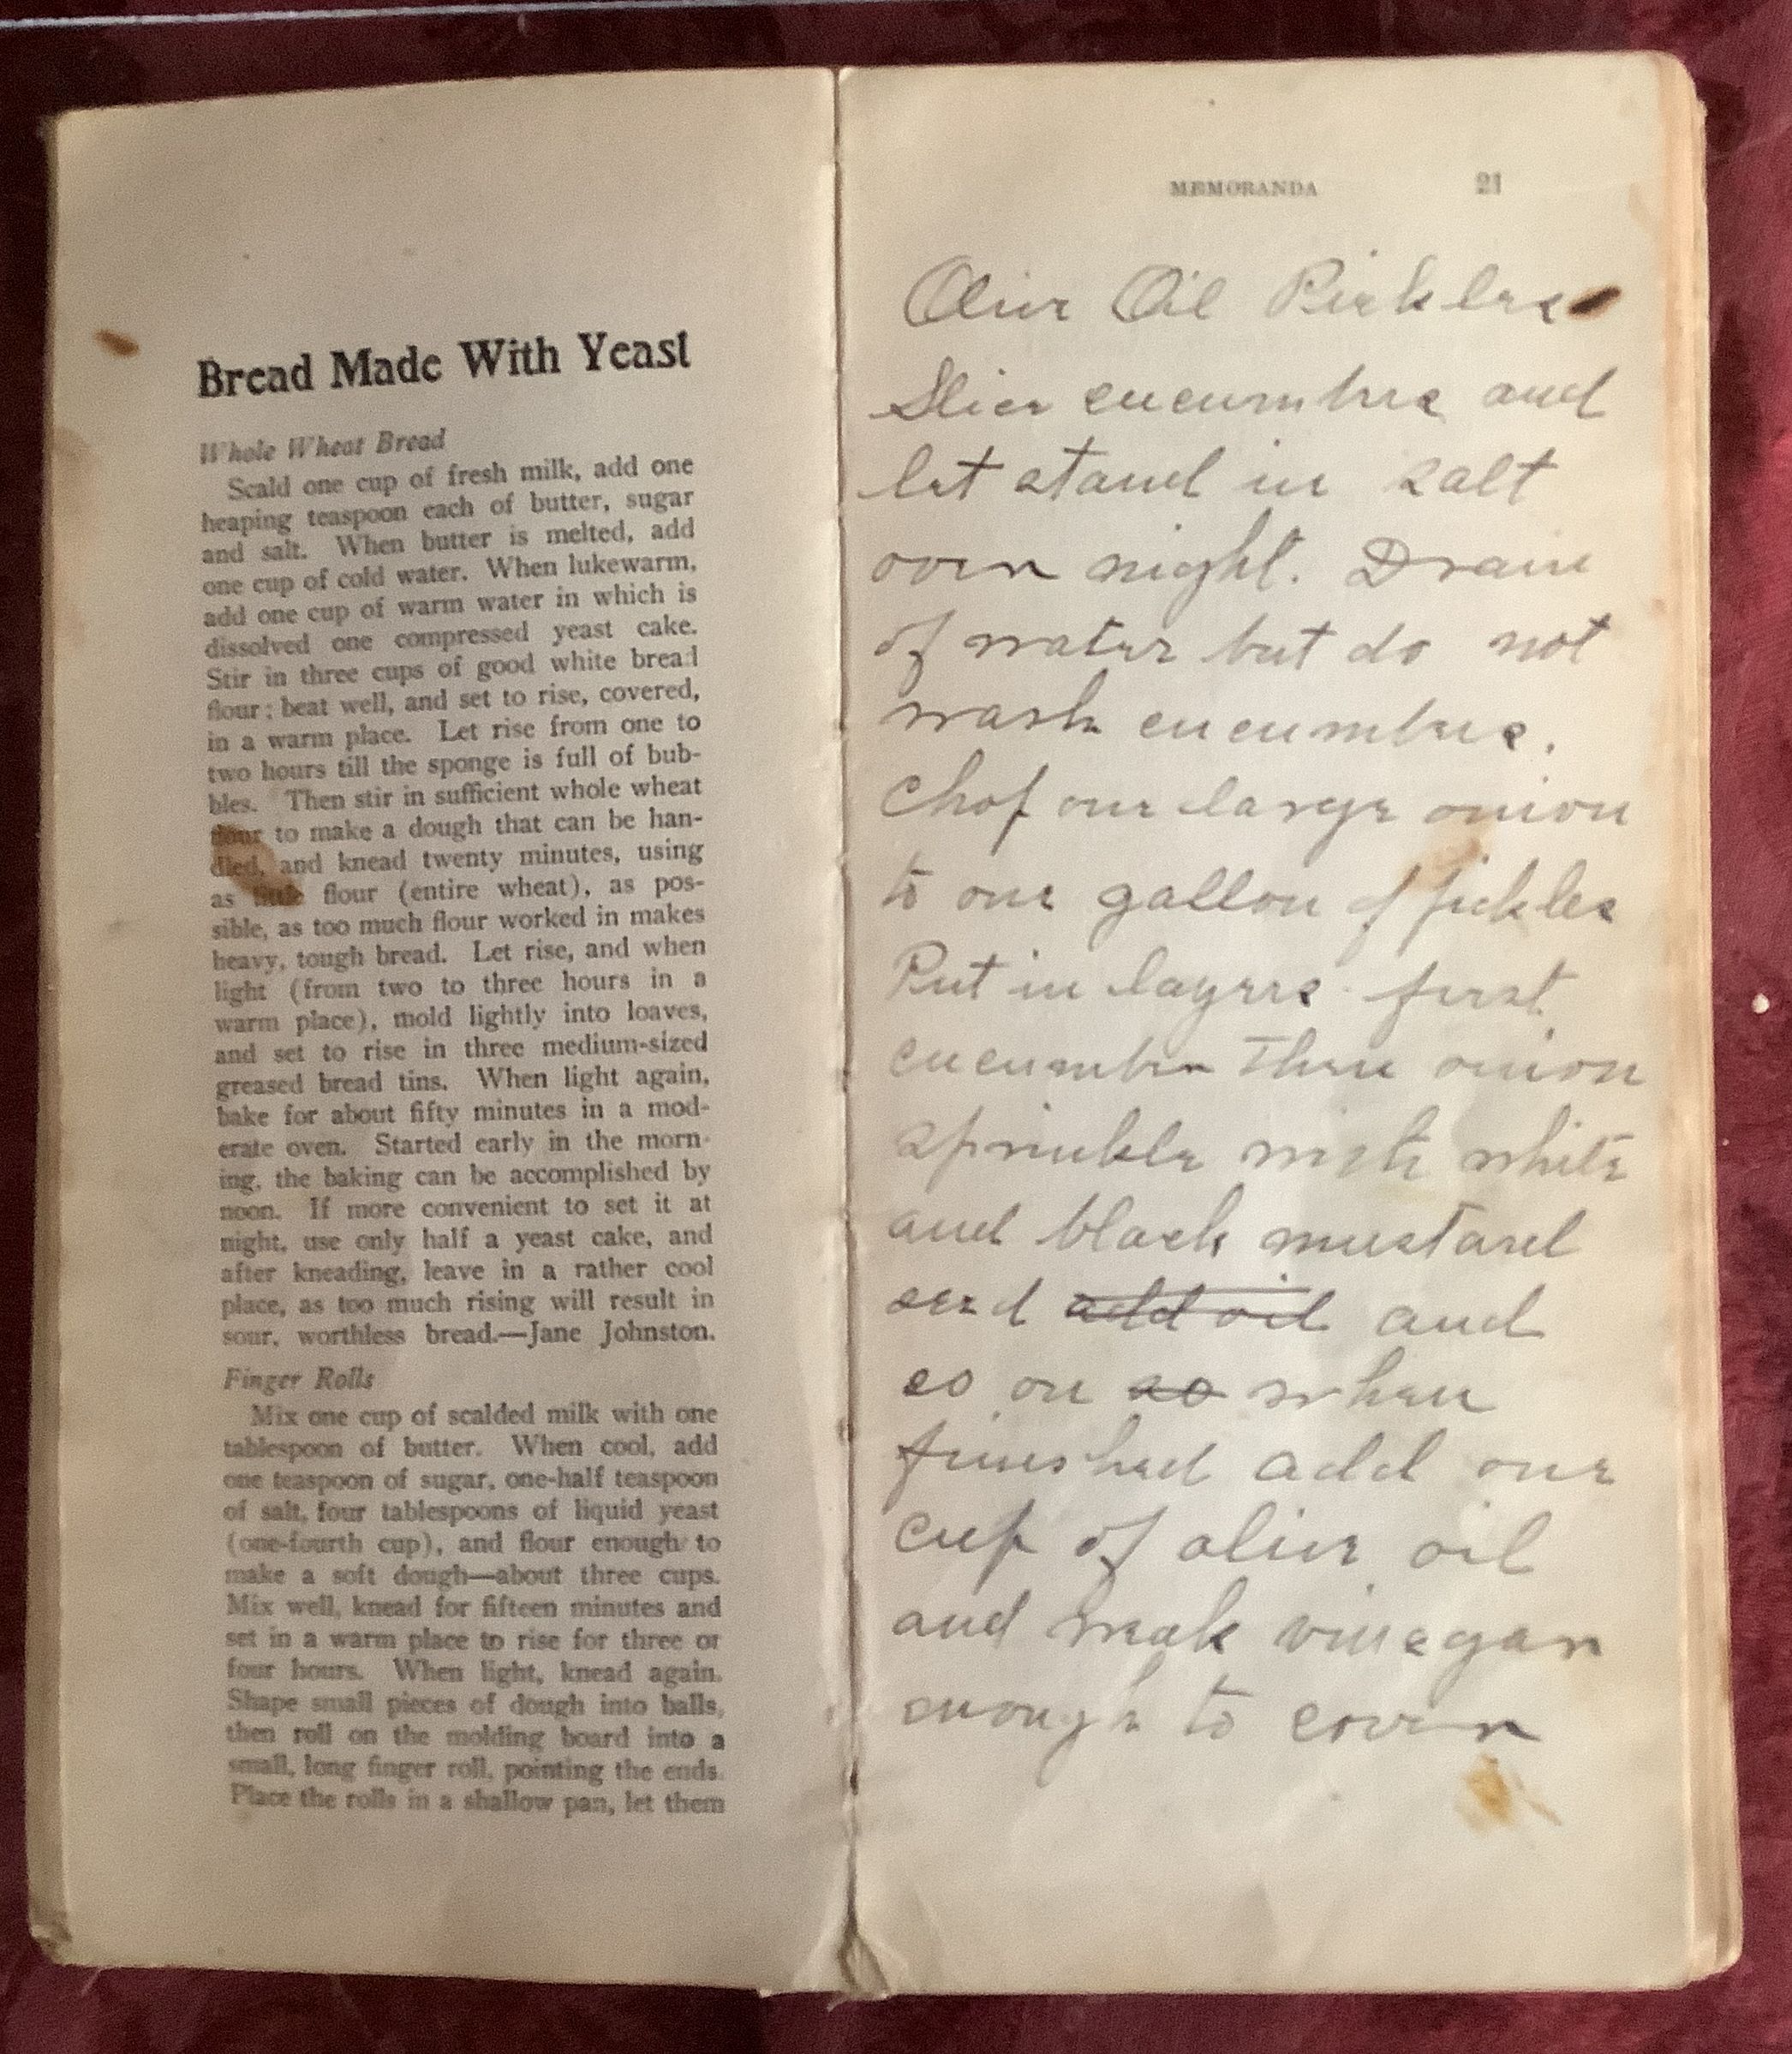 Bread Made With Yeast
Whole Wheat Bread
Scald one cup of fresh milk, add one
heaping teaspoon each of butter, sugar
and salt. When butter is melted, add
one cup of cold water. When lukewarm,
add one cup of warm water in which is
dissolved one compressed yeast cake.
Stir in three cups of good white bread
flour; beat well, and set to rise, covered,
in a warm place. Let rise from one to
two hours till the sponge is full of bub-
bles. Then stir in sufficient whole wheat
flour to make a dough that can be han-
dled, and knead twenty minutes, using
as little flour (entire wheat), as pos-
sible, as too much flour worked in makes
heavy, tough bread. Let rise, and when
light (from two to three hours in a
warm place), mold lightly into loaves,
and set to rise in three medium-sized
greased bread tins. When light again,
bake for about fifty minutes in a mod-
erate oven. Started early in the morn-
ing, the baking can be accomplished by
noon. If more convenient to set it at
night, use only half a yeast cake, and
after kneading, leave in a rather cool
place, as too much rising will result in
sour, worthless bread.—Jane Johnston.
Finger Rolls
Mix one cup of scalded milk with one
tablespoon of butter. When cool, add
one teaspoon of sugar, one-half teaspoon
of salt, four tablespoons of liquid yeast
(one-fourth cup), and flour enough to
make a soft dough—about three cups.
Mix well, knead for fifteen minutes and
set in a warm place to rise for three or
four hours. When light, knead again.
Shape small pieces of dough into balls,
then roll on the molding board into a
small, long finger roll, pointing the ends.
Place the rolls in a shallow pan, let them
MEMORANDA 21
Olive Oil Pickles
Slice cucumbers and
let stand in salt
over night. Drain
of water but do not
wash cucumbers.
Chop one large onion
to one gallon of pickles
Put in layers first
cucumber then onion
sprinkle with white
and black mustard
seed add oil and
so on so when
finished add one
cup of olive oil
and weak vinegar
enough to cover